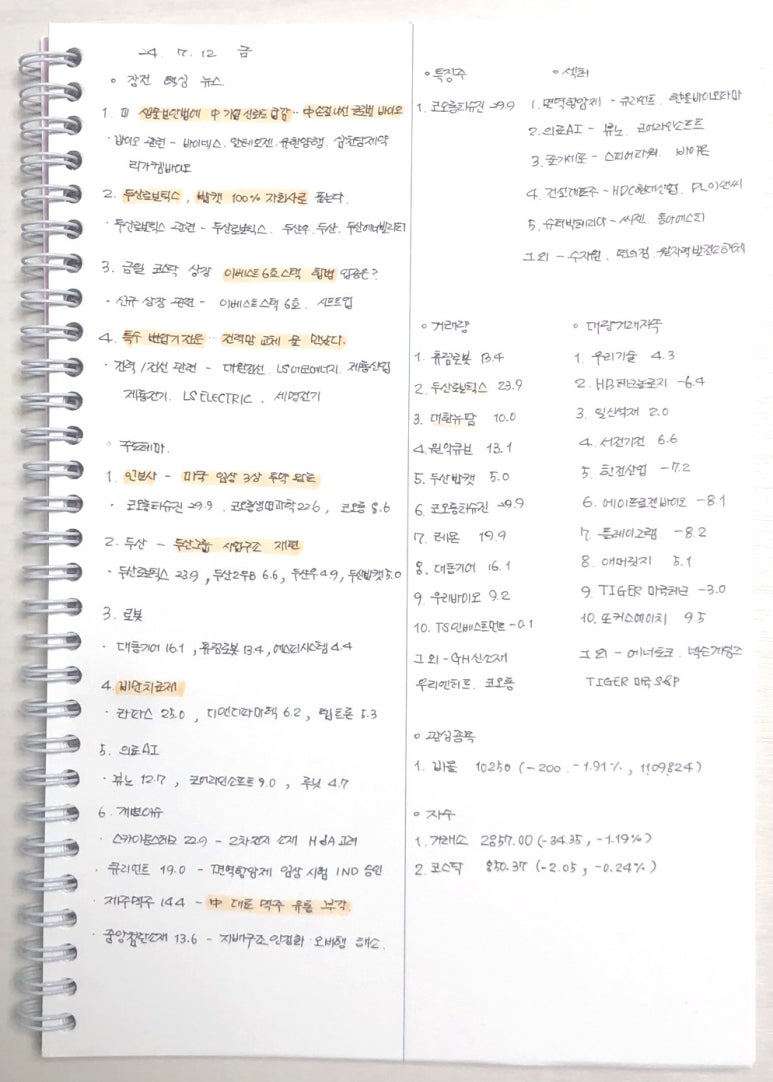 24. 7. 12 금
◦ 장전 핵심 뉴스
1. 미 생물보안법에 中 기업 신뢰도 급감 … 中손절나선 글로벌 바이오
· 바이오 관련 - 바이넥스. 알테오젠. 유한양행. 삼천당제약
리가켐바이오
2. 두산로보틱스, 밥캣 100% 자회사로 품는다.
· 두산로보틱스 관련 - 두산로보틱스. 두산우. 두산. 두산에너빌리티
3. 금일 코스닥 상장 이베스트6호스팩 합병 입증은?
· 신규 상장 관련 - 이베스트스팩 6호. 시프트업
4. 특수 변압기 전문 … 전력망 교체 붐 만났다.
· 전력/전선 관련 - 대원전선. LS에코에너지. 제룡산업
제룡전기. LS ELECTRIC. 세명전기
◦ 주도테마.
1. 인보사 - 미국 임상 3상 투약 완료
· 코오롱티슈진 29.9. 코오롱생명과학 22.6, 코오롱 8.6
2. 두산 - 두산그룹 사업구조 재편
· 두산로보틱스 23.9, 두산2우B 6.6, 두산우 4.9, 두산밥캣 5.0
3. 로봇
· 대동기어 16.1, 휴림로봇 13.4, 에스피시스템 4.4
4. 비만치료제
· 라파스 25.0, 디앤디파마텍 6.2, 펩트론 5.3
5. 의료AI
· 뷰노 12.7, 코어라인소프트 9.0, 루닛 4.7
6. 개별이슈
· 22.9 - 2차전지 소재 M&A 고려
· 큐리언트 19.0 - 면역항암제 임상 시험 IND 승인
· 제주맥주 14.4 - 中 대표 맥주 유통 부각.
· 중앙첨단소재 13.6 - 지배구조 안정화·오버행 해소.
◦ 특징주
1. 코오롱티슈진 29.9
◦ 섹터
1. 면역항암제 - 큐리언트. 한올바이오파마
2. 의료AI - 뷰노. 코어라인소프트
3. 줄기세포 - 스피어파워. 바이온
4. 건설대표주 - HDC현대산업. DL이앤씨
5. 슈퍼박테리아 - 씨젠. 동아에스티
그 외 - 수자원. 편의점. 원자력발전소해체
◦ 거래량
1. 휴림로봇 13.4
2. 두산로보틱스 23.9
3. 대한뉴팜 10.0
4. 원익큐브 13.1
5. 두산밥캣 5.0
6. 코오롱티슈진 29.9
7. 레몬 19.9
8. 대동기어 16.1
9. 우리바이오 9.2
10. TS인베스트먼트 -0.1
그 외 - GH신소재
우리엔터프. 코오롱
◦ 대량거래자쪽
1. 우리기술 4.3
2. HB테크놀러지 -6.4
3. 일신석재 2.0
4. 서전기전 6.6
5. 한전산업 -7.2
6. 에이프로젠바이오 -8.1
7. 플레이그램 -8.2
8. 애머릿지 5.1
9. TIGER 미국테크 -3.0
10. 포커스에이치 9.5
그 외 - 에너토크. 넥슨게임즈
TIGER 미국 S&P
◦ 관심종목
1. 비올 10250 (-200. -1.91%, 1109824)
◦ 지수
1. 거래소 2857.00 (-34.35, -1.19%)
2. 코스닥 850.37 (-2.05, -0.24%)